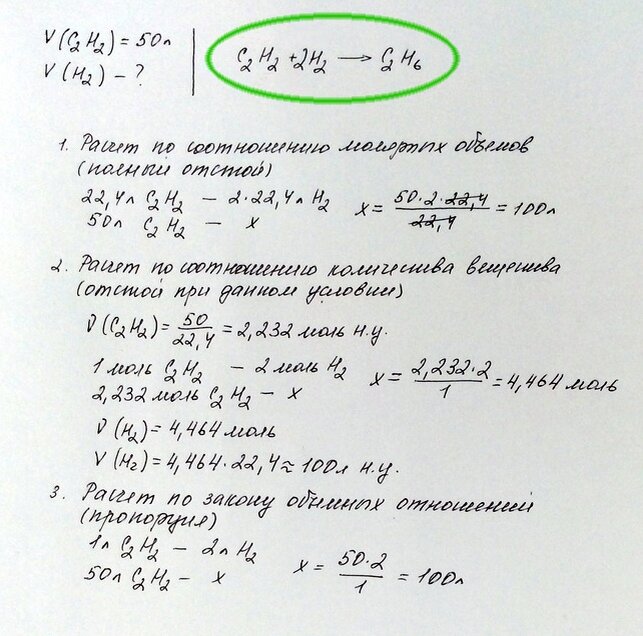 V(C₂H₂) = 50л
V(H₂) – ?
C₂H₂ + 2H₂ → C₂H₆
1. Расчет по соотношению молярных объемов
(полный отстой)
22,4л C₂H₂ – 2·22,4л H₂
50л C₂H₂ – x
x = 50·2·22,4 / 22,4 = 100л
2. Расчет по соотношению количества вещества
(отстой при данном условии)
ν(C₂H₂) = 50 / 22,4 = 2,232 моль н.у.
1 моль C₂H₂ – 2 моль H₂
2,232 моль C₂H₂ – x
x = 2,232·2 / 1 = 4,464 моль
ν(H₂) = 4,464 моль
V(H₂) = 4,464·22,4 ≈ 100л н.у.
3. Расчет по закону объемных отношений
(пропорция)
1л C₂H₂ – 2л H₂
50л C₂H₂ – x
x = 50·2 / 1 = 100л